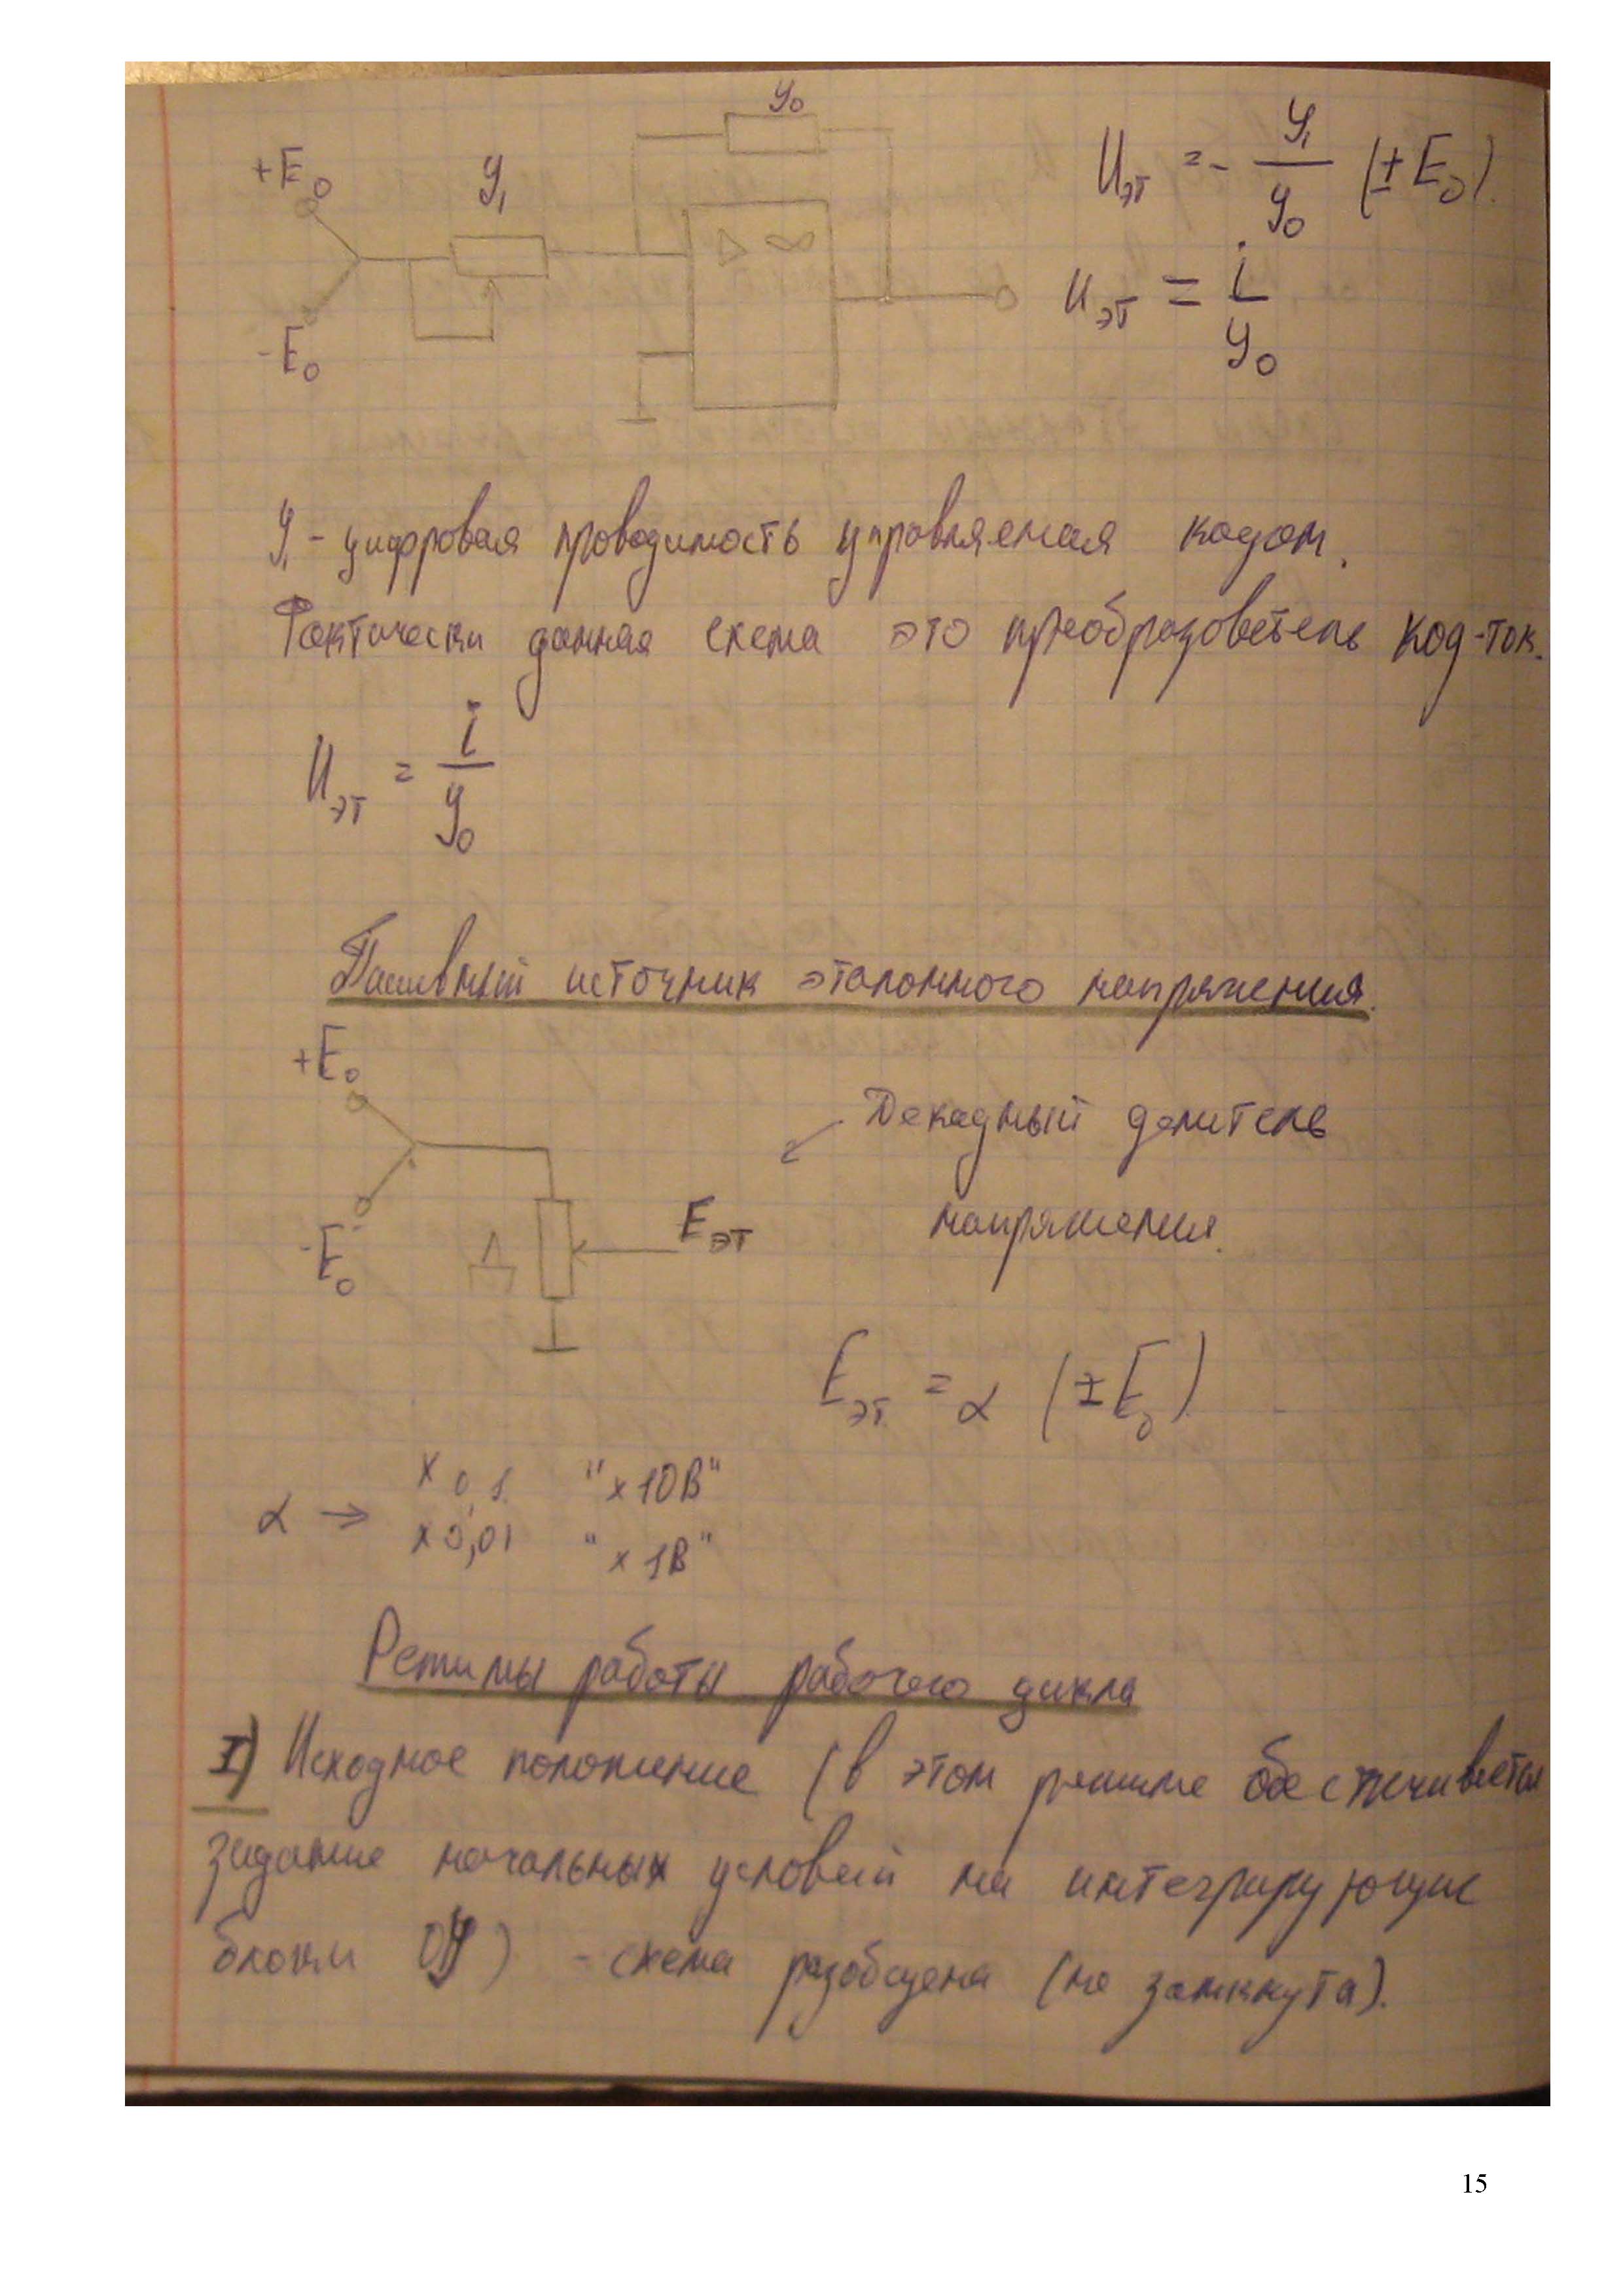 y₀
+E₀
y₁
▷ ∞
-E₀
Uэт = - y₁/y₀ (±E₀).
Uэт = i/y₀
y₁ - цифровая проводимость управляемая кодом.
Фактически данная схема это преобразователь код-ток.
Uэт = i/y₀
Пасивный источник эталонного напряжения.
+E₀
-E₀
Д
Eэт
Декадный делитель
напряжения.
Eэт = α (±E₀)
α → x 0,1 "x10В"
x 0,01 "x 1В"
Режимы работы рабочего цикла
I) Исходное положение (в этом режиме обеспечивается
задание начальных условий на интегрирующие
блоки ОУ) - схема разобщена (не замкнута).
15